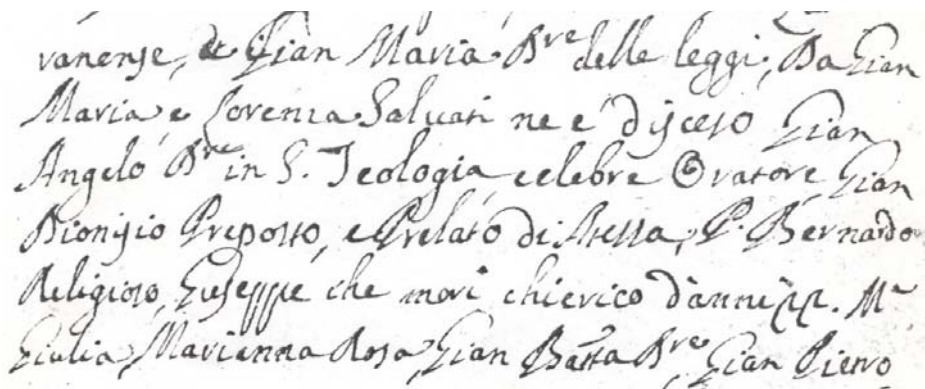 vanense, e Gian Maria Dre delle leggi, Da Gian
Maria e Lorenza Salvati ne è disceso Gian
Angelo Dre in S. Teologia, celebre Oratore, Gian
Dionisio Preposto, e Prelato di Atella, P. Bernardo
Religioso, Giuseppe che morì chierico d'anni 22. Ma
Giulia, Marianna Rosa, Gian Batta Dre, Gian Pietro